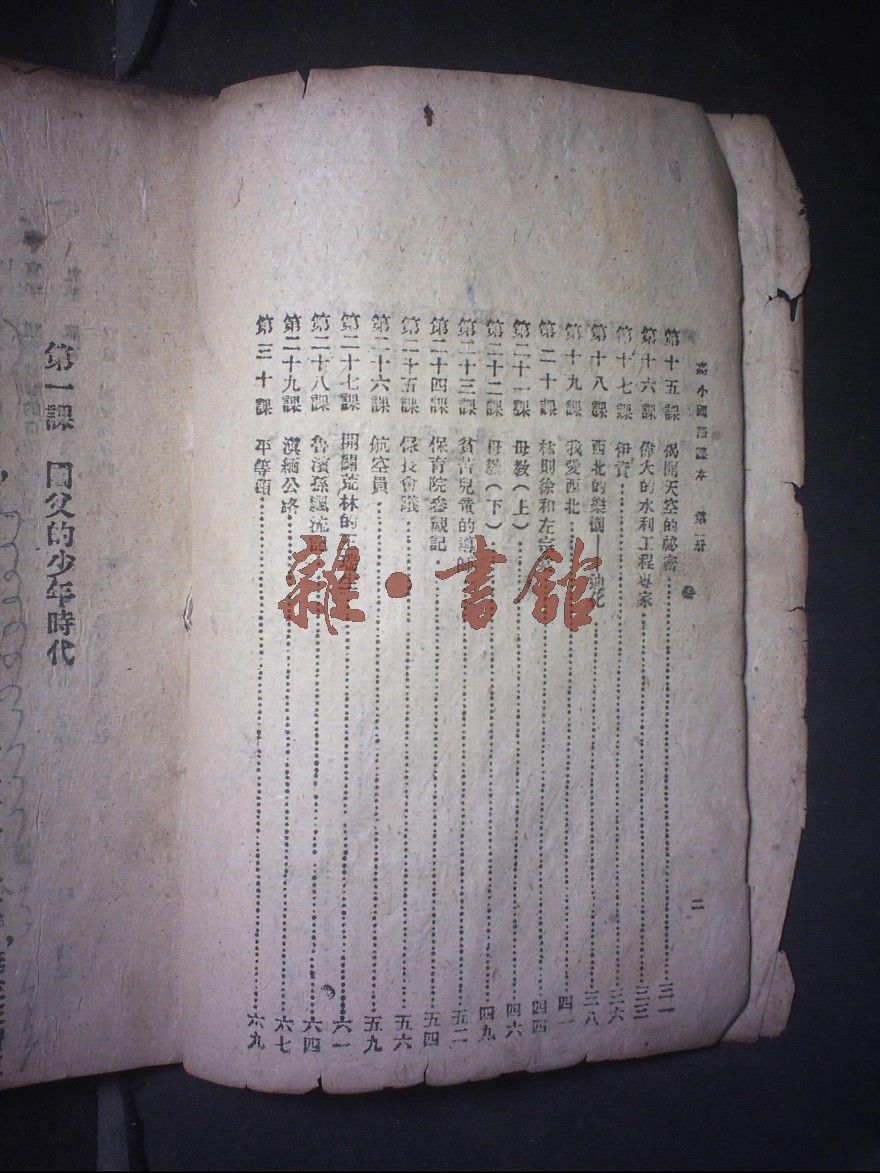 高小國語課本　第一册
二
第十五課　偈開天空的祕密……三一
第十六課　偉大的水利工程專家……三三
第十七課　伊寶……三六
第十八課　西北的樂園——油花……三八
第十九課　我愛西北……四一
第二十課　林則徐和左宗……四四
第二十一課　母教（上）……四六
第二十二課　母教（下）……四九
第二十三課　貧苦兒童的導師……五二
第二十四課　保育院參觀記……五四
第二十五課　保長會議……五六
第二十六課　航空員……五九
第二十七課　開闢荒林的王……六一
第二十八課　魯濱孫飄流……六四
第二十九課　滇緬公路……六七
第三十課　平等頌……六九
第一課　國父的少年時代
雜·書館